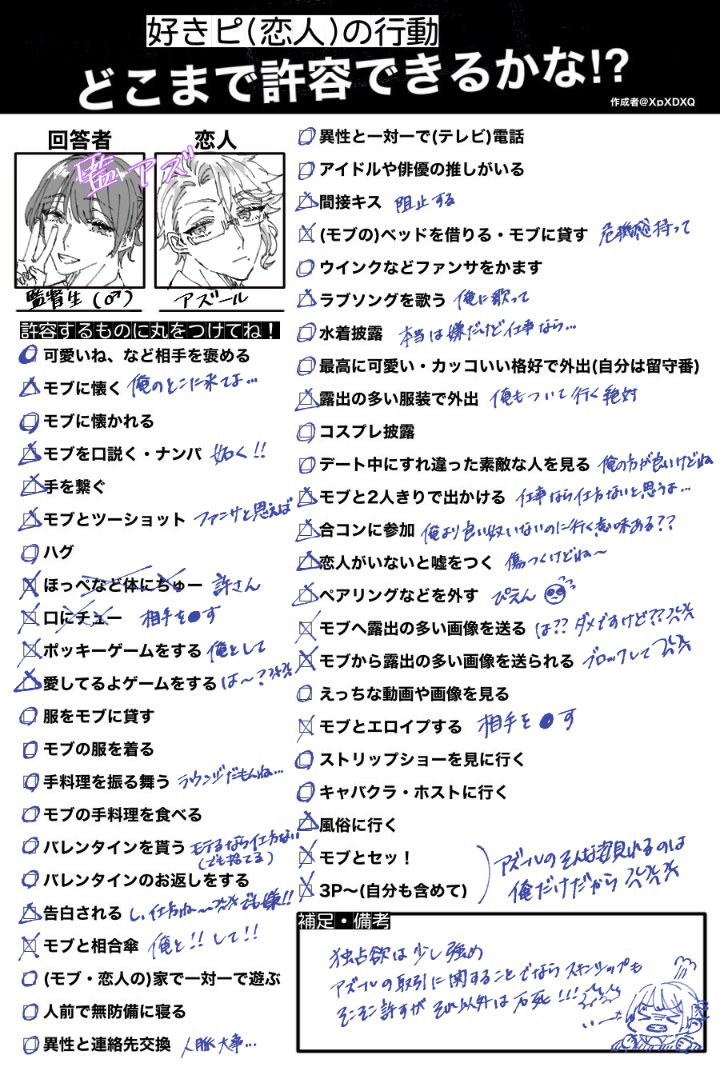 好きピ(恋人)の行動
どこまで許容できるかな!?
作成者@XpXDXQ
回答者
恋人
監アズ
監督生(♂)
アズール
許容するものに丸をつけてね！
可愛いね、など相手を褒める
モブに懐く 俺のとこに来てよ…
モブに懐かれる
モブを口説く・ナンパ 妬く!!
手を繋ぐ
モブとツーショット ファンサと思えば
ハグ
ほっぺなど体にちゅー 許さん
口にチュー 相手を●す
ポッキーゲームをする 俺として
愛してるよゲームをする は〜?
服をモブに貸す
モブの服を着る
手料理を振る舞う ラウンジだもんね…
モブの手料理を食べる
バレンタインを貰う モテるなら仕方ない
(でも捨てる)
バレンタインのお返しをする
告白される し、仕方ね〜 でも嫌!!
モブと相合傘 俺と!!して!!
(モブ・恋人の)家で一対一で遊ぶ
人前で無防備に寝る
異性と連絡先交換 人脈大事…
異性と一対一で(テレビ)電話
アイドルや俳優の推しがいる
間接キス 阻止する
(モブの)ベッドを借りる・モブに貸す 危機感持って
ウインクなどファンサをかます
ラブソングを歌う 俺に歌って
水着披露 本当は嫌だけど仕事なら…
最高に可愛い・カッコいい格好で外出(自分は留守番)
露出の多い服装で外出 俺もついて行く絶対
コスプレ披露
デート中にすれ違った素敵な人を見る 俺の方が良いけどね
モブと2人きりで出かける 仕事なら仕方ないと思うよ…
合コンに参加 俺より良い奴いないのに行く意味ある??
恋人がいないと嘘をつく 傷つくけどね〜
ペアリングなどを外す ぴえん
モブへ露出の多い画像を送る は??ダメですけど??
モブから露出の多い画像を送られる ブロックして
えっちな動画や画像を見る
モブとエロイプする 相手を●す
ストリップショーを見に行く
キャバクラ・ホストに行く
風俗に行く
モブとセッ！
3P〜(自分も含めて)
アズールのそんな姿見れるのは
俺だけだから
補足・備考
独占欲は少し強め
アズールの取引に関することでならスキンシップも
そこそこ許すがそれ以外は万死!!!